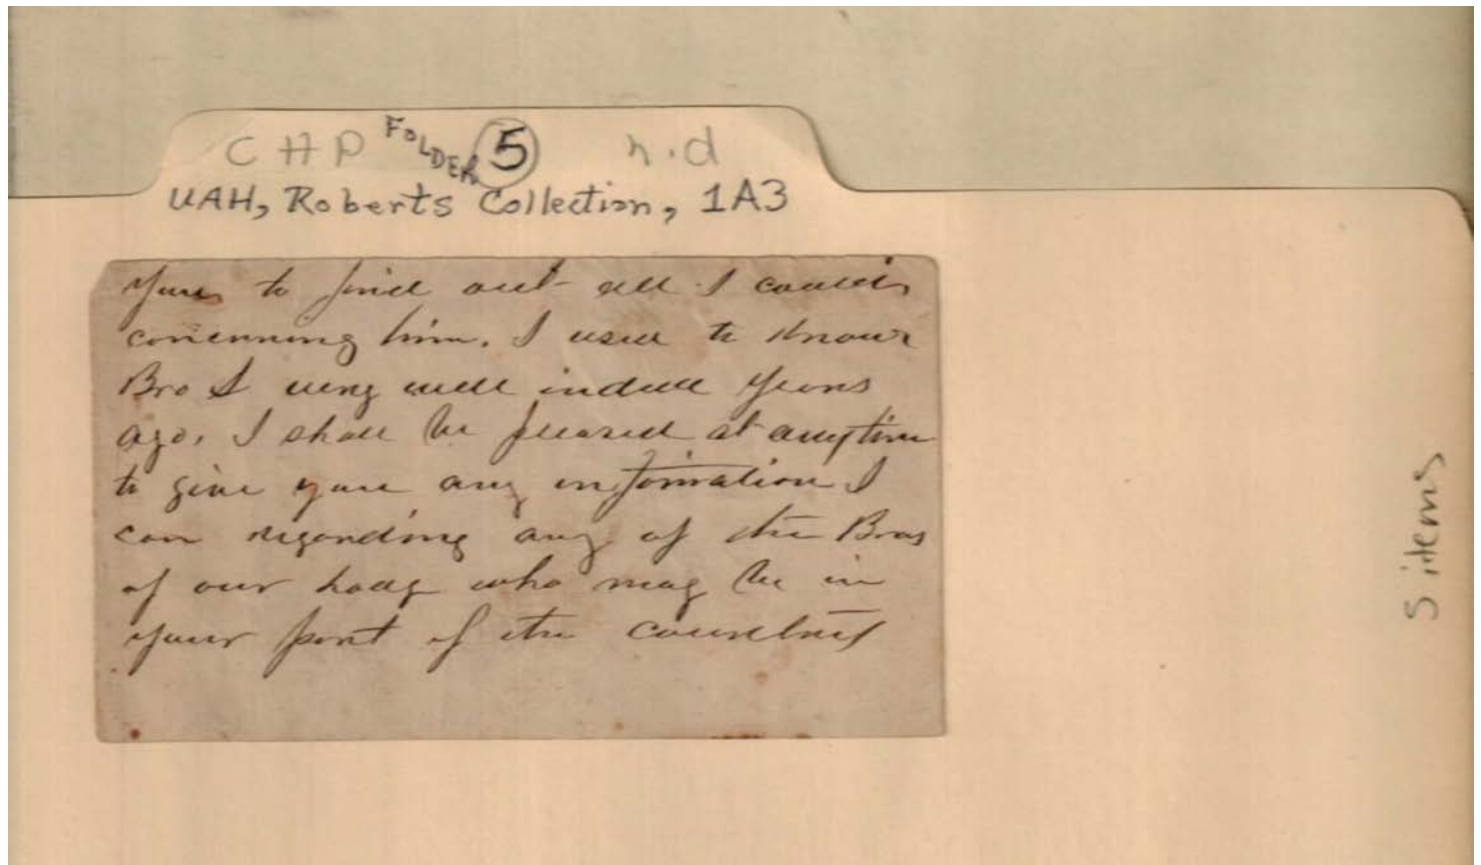 CHP FOLDER 5 n.d
UAH, Roberts Collection, 1A3
yours to find out all I could
concerning him. I used to know
Bro S very well indeed years
ago. I shall be pleased at anytime
to give you any information I
can regarding any of the Bros
of our Lodge who may be in
your part of the country
5 items